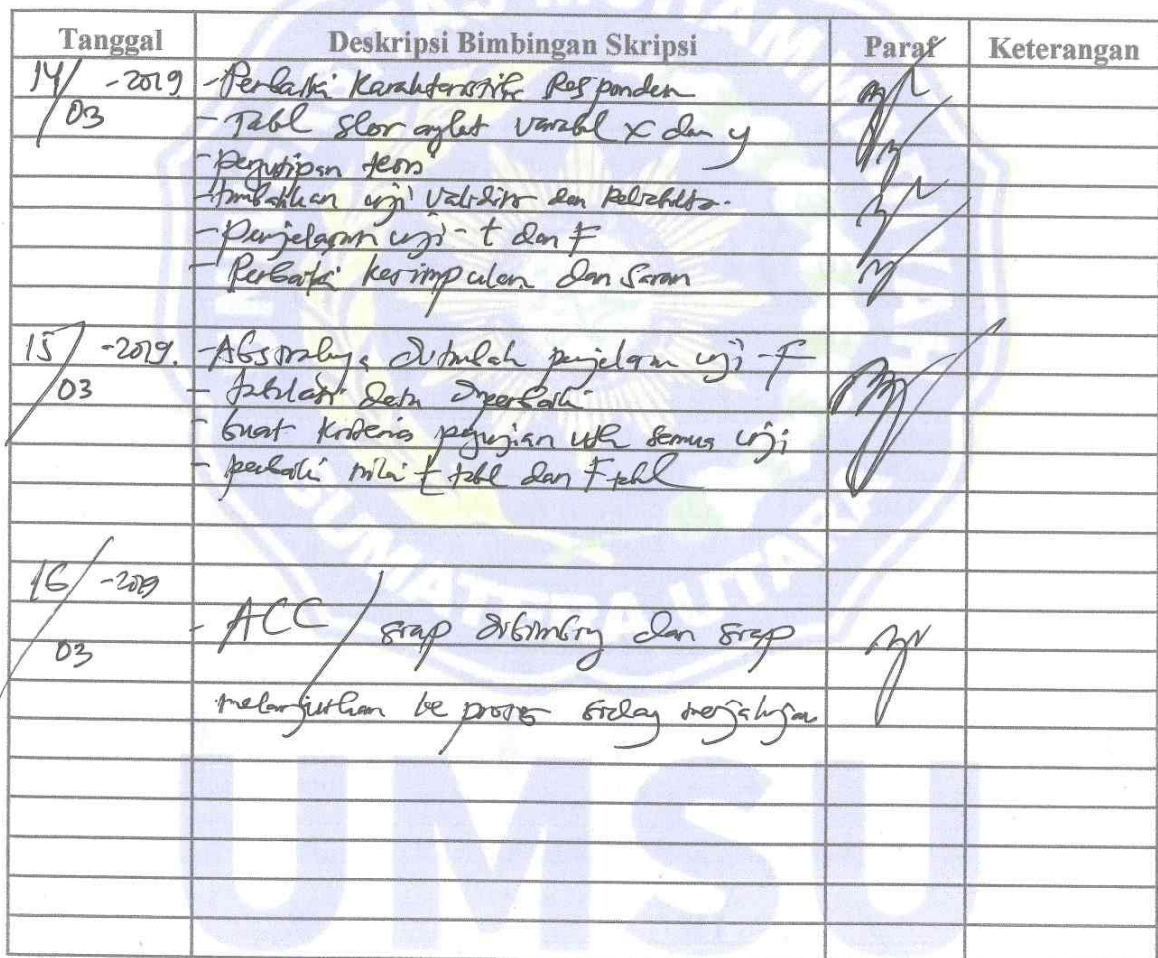 Tanggal Deskripsi Bimbingan Skripsi Paraf Keterangan
14/03 -2019 - Perbaiki Karakteristik Responden
- Tabl skor anglet variabel X dan Y
- pengutipan teori
- tambahkan uji validitas dan Reliabilitas.
- Penjelasan uji - t dan F
- Perbaiki kesimpulan dan Saran
15/03 -2019. - Abstraknya ditambah penjelasan uji - F
- tabulasi data diperbaiki
- buat kriteria pengujian utk semua uji
- perbaiki nilai t tabl dan F tabl
16/03 -2019
- ACC / siap dibimbing dan siap
melanjutkan ke proses sidang
SUMATERA UTARA
UMSU